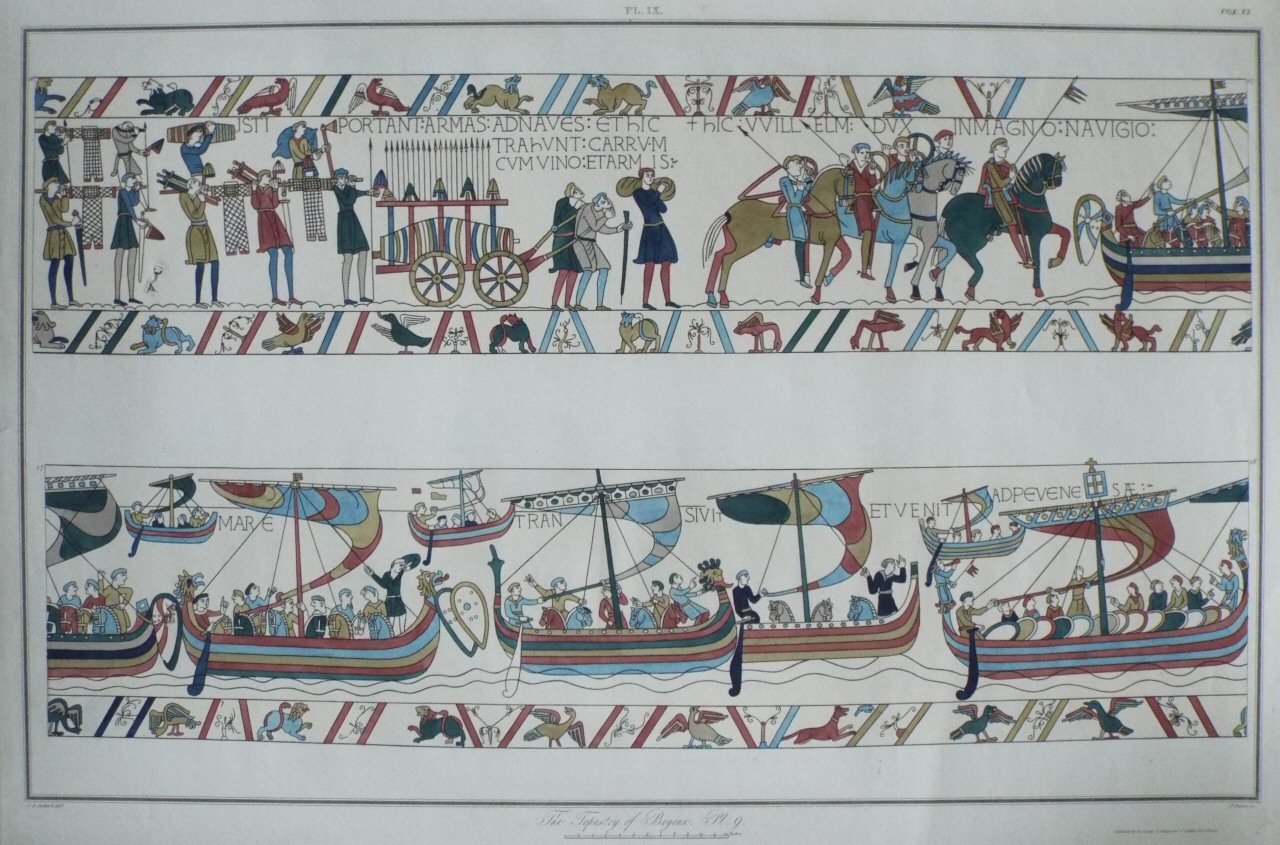 PL. IX.
VOL. VI
ISTI PORTANT: ARMAS: ADNAVES: ET hIC
TRAhVNT: CARRVM
CVM VINO: ET ARMIS:
+ hIC: VVILLELM: DVX IN MAGNO: NAVIGIO:
17
MARE TRAN SIVIT ET VENIT AD PEVENESÆ:
The Tapestry of Bayeux. Pl. 9.